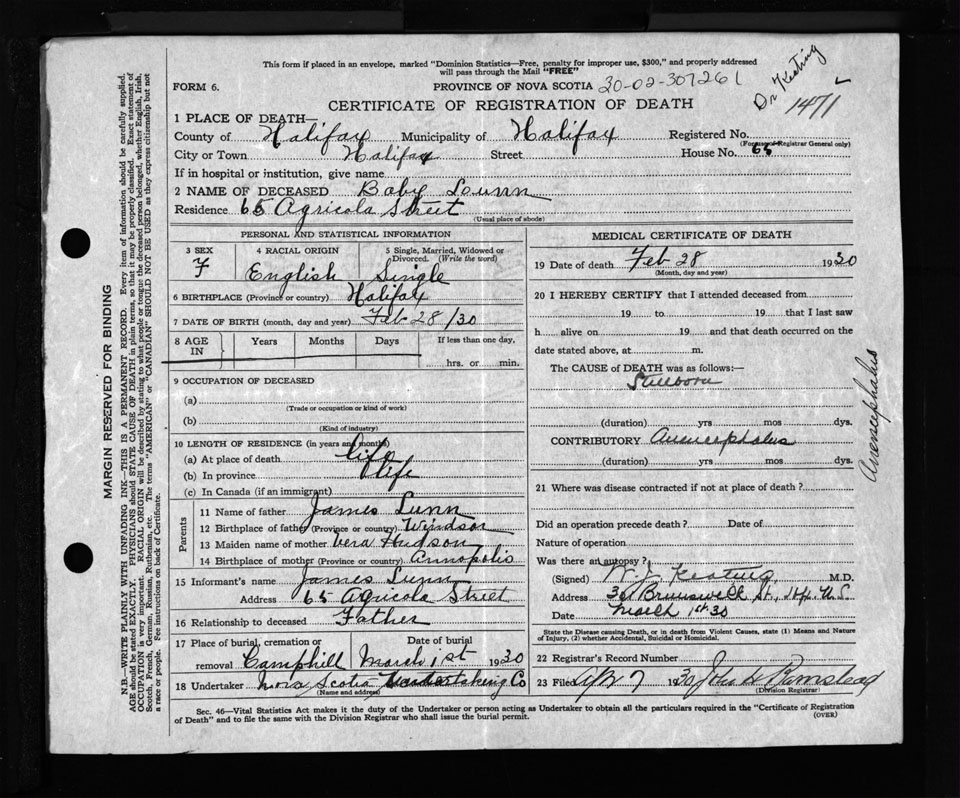 This form if placed in an envelope, marked "Dominion Statistics—Free, penalty for improper use, $300," and properly addressed
will pass through the Mail "FREE"
FORM 6. PROVINCE OF NOVA SCOTIA 30-02-307261
Dr Keating
1471
CERTIFICATE OF REGISTRATION OF DEATH
1 PLACE OF DEATH—
County of Halifax Municipality of Halifax Registered No.
(For use of Registrar General only)
City or Town Halifax Street House No. 65
If in hospital or institution, give name
2 NAME OF DECEASED Baby Lunn
Residence 65 Agricola Street
(Usual place of abode)
PERSONAL AND STATISTICAL INFORMATION
3 SEX 4 RACIAL ORIGIN 5 Single, Married, Widowed or Divorced. (Write the word)
F English Single
6 BIRTHPLACE (Province or country) Halifax
7 DATE OF BIRTH (month, day and year) Feb 28/30
8 AGE IN Years Months Days If less than one day,
hrs. or min.
9 OCCUPATION OF DECEASED
(a)
(Trade or occupation or kind of work)
(b)
(Kind of industry)
10 LENGTH OF RESIDENCE (in years and months)
(a) At place of death life
(b) In province life
(c) In Canada (if an immigrant)
Parents
11 Name of father James Lunn
12 Birthplace of father (Province or country) Windsor
13 Maiden name of mother Vera Hudson
14 Birthplace of mother (Province or country) Annopolis
15 Informant's name James Lunn
Address 65 Agricola Street
16 Relationship to deceased Father
17 Place of burial, cremation or removal Date of burial
Camphill March 1st 1930
18 Undertaker Nova Scotia Undertaking Co
(Name and address)
MEDICAL CERTIFICATE OF DEATH
19 Date of death Feb 28 1930
(Month, day and year)
20 I HEREBY CERTIFY that I attended deceased from
19 to 19 that I last saw
h alive on 19 and that death occurred on
date stated above, at m.
The CAUSE of DEATH was as follows:—
Stillborn
(duration) yrs mos dys.
CONTRIBUTORY Anencephalus
(duration) yrs mos dys.
21 Where was disease contracted if not at place of death?
Did an operation precede death? Date of
Nature of operation
Was there an autopsy?
(Signed) W. J. Keating, M.D.
Address Brunswick St., Hfx N.S.
Date March 1st 30
State the Disease causing Death, or in death from Violent Causes, state (1) Means and Nature
of Injury, (2) whether Accidental, Suicidal or Homicidal.
22 Registrar's Record Number
23 Filed 1930
(Division Registrar)
Sec. 46—Vital Statistics Act makes it the duty of the Undertaker or person acting as Undertaker to obtain all the particulars required in the "Certificate of Registration
of Death" and to file the same with the Division Registrar who shall issue the burial permit.
(OVER)
Anencephalus
MARGIN RESERVED FOR BINDING
N.B.—WRITE PLAINLY WITH UNFADING INK—THIS IS A PERMANENT RECORD. Every item of information should be carefully supplied.
AGE should be stated EXACTLY. PHYSICIANS should STATE CAUSE OF DEATH in plain terms, so that it may be properly classified. Exact statement of
OCCUPATION is very important. RACIAL ORIGIN will be described by stating to what people or tongue the deceased person belonged, whether English, Irish,
Scotch, French, German, Russian, Ruthenian, etc. The terms "AMERICAN" or "CANADIAN" SHOULD NOT BE USED as they express citizenship but not
a race or people. See instructions on back of Certificate.